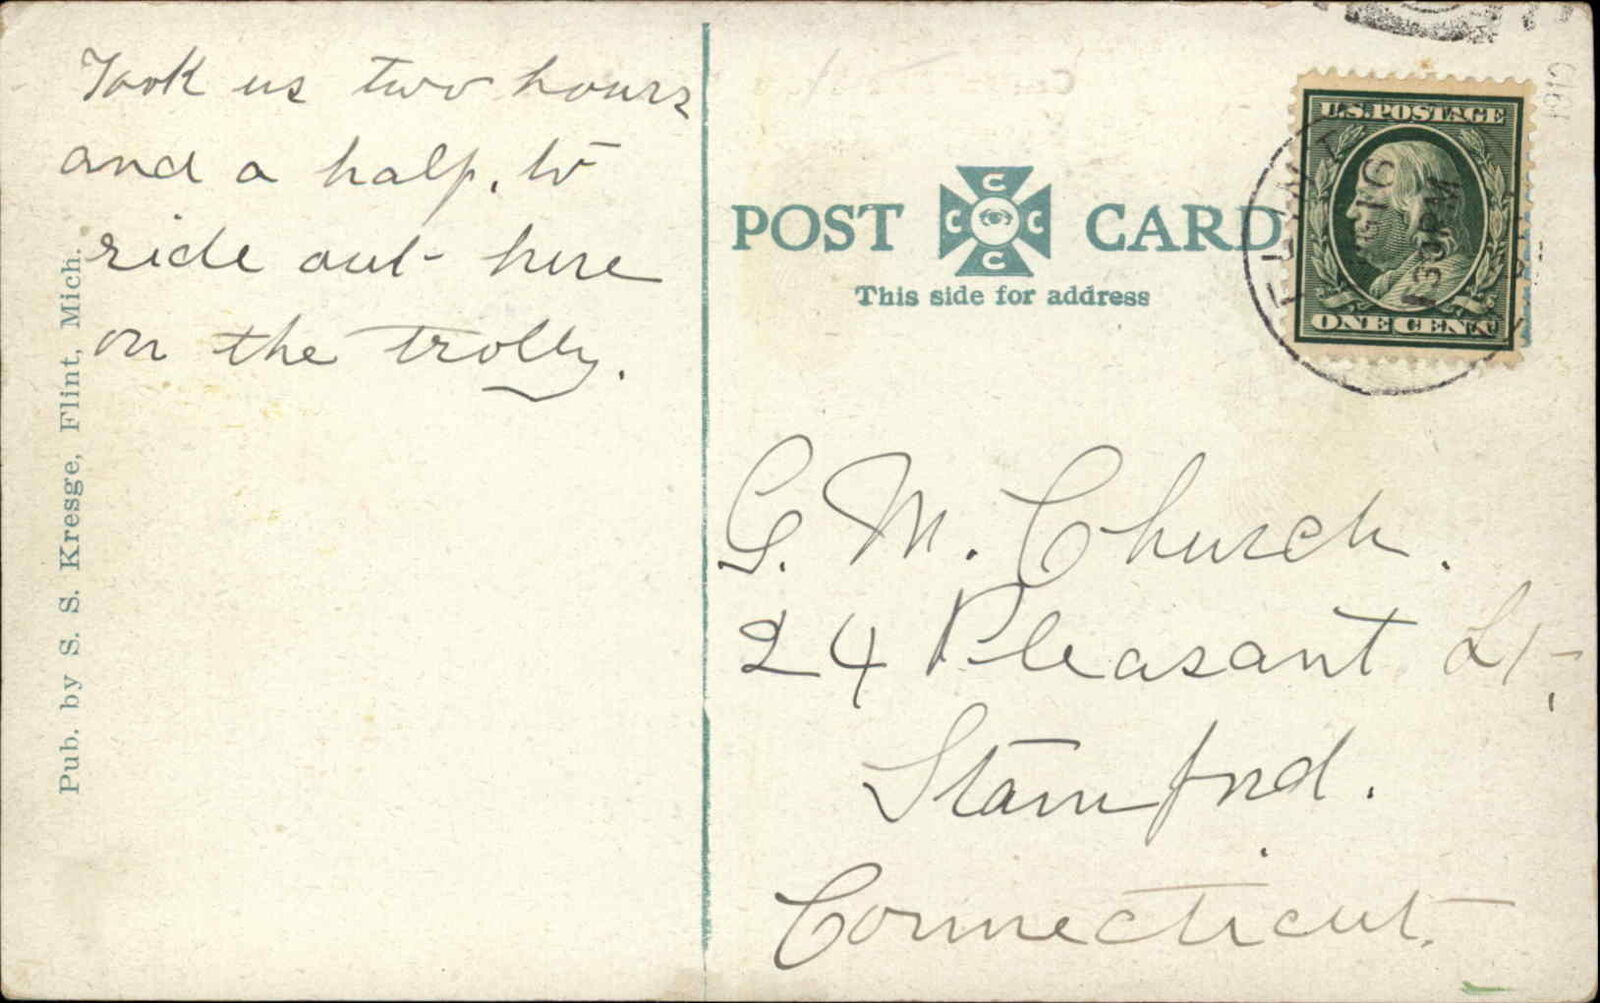 Took us two hours
and a half, to
ride out here
on the trolly.
Pub. by S. S. Kresge, Flint, Mich.
POST CARD
C C C C
This side for address
U.S. POSTAGE
ONE CENT
FLINT
16
130PM
1910
G. M. Church.
24 Pleasant St,
Stamford.
Connecticut.